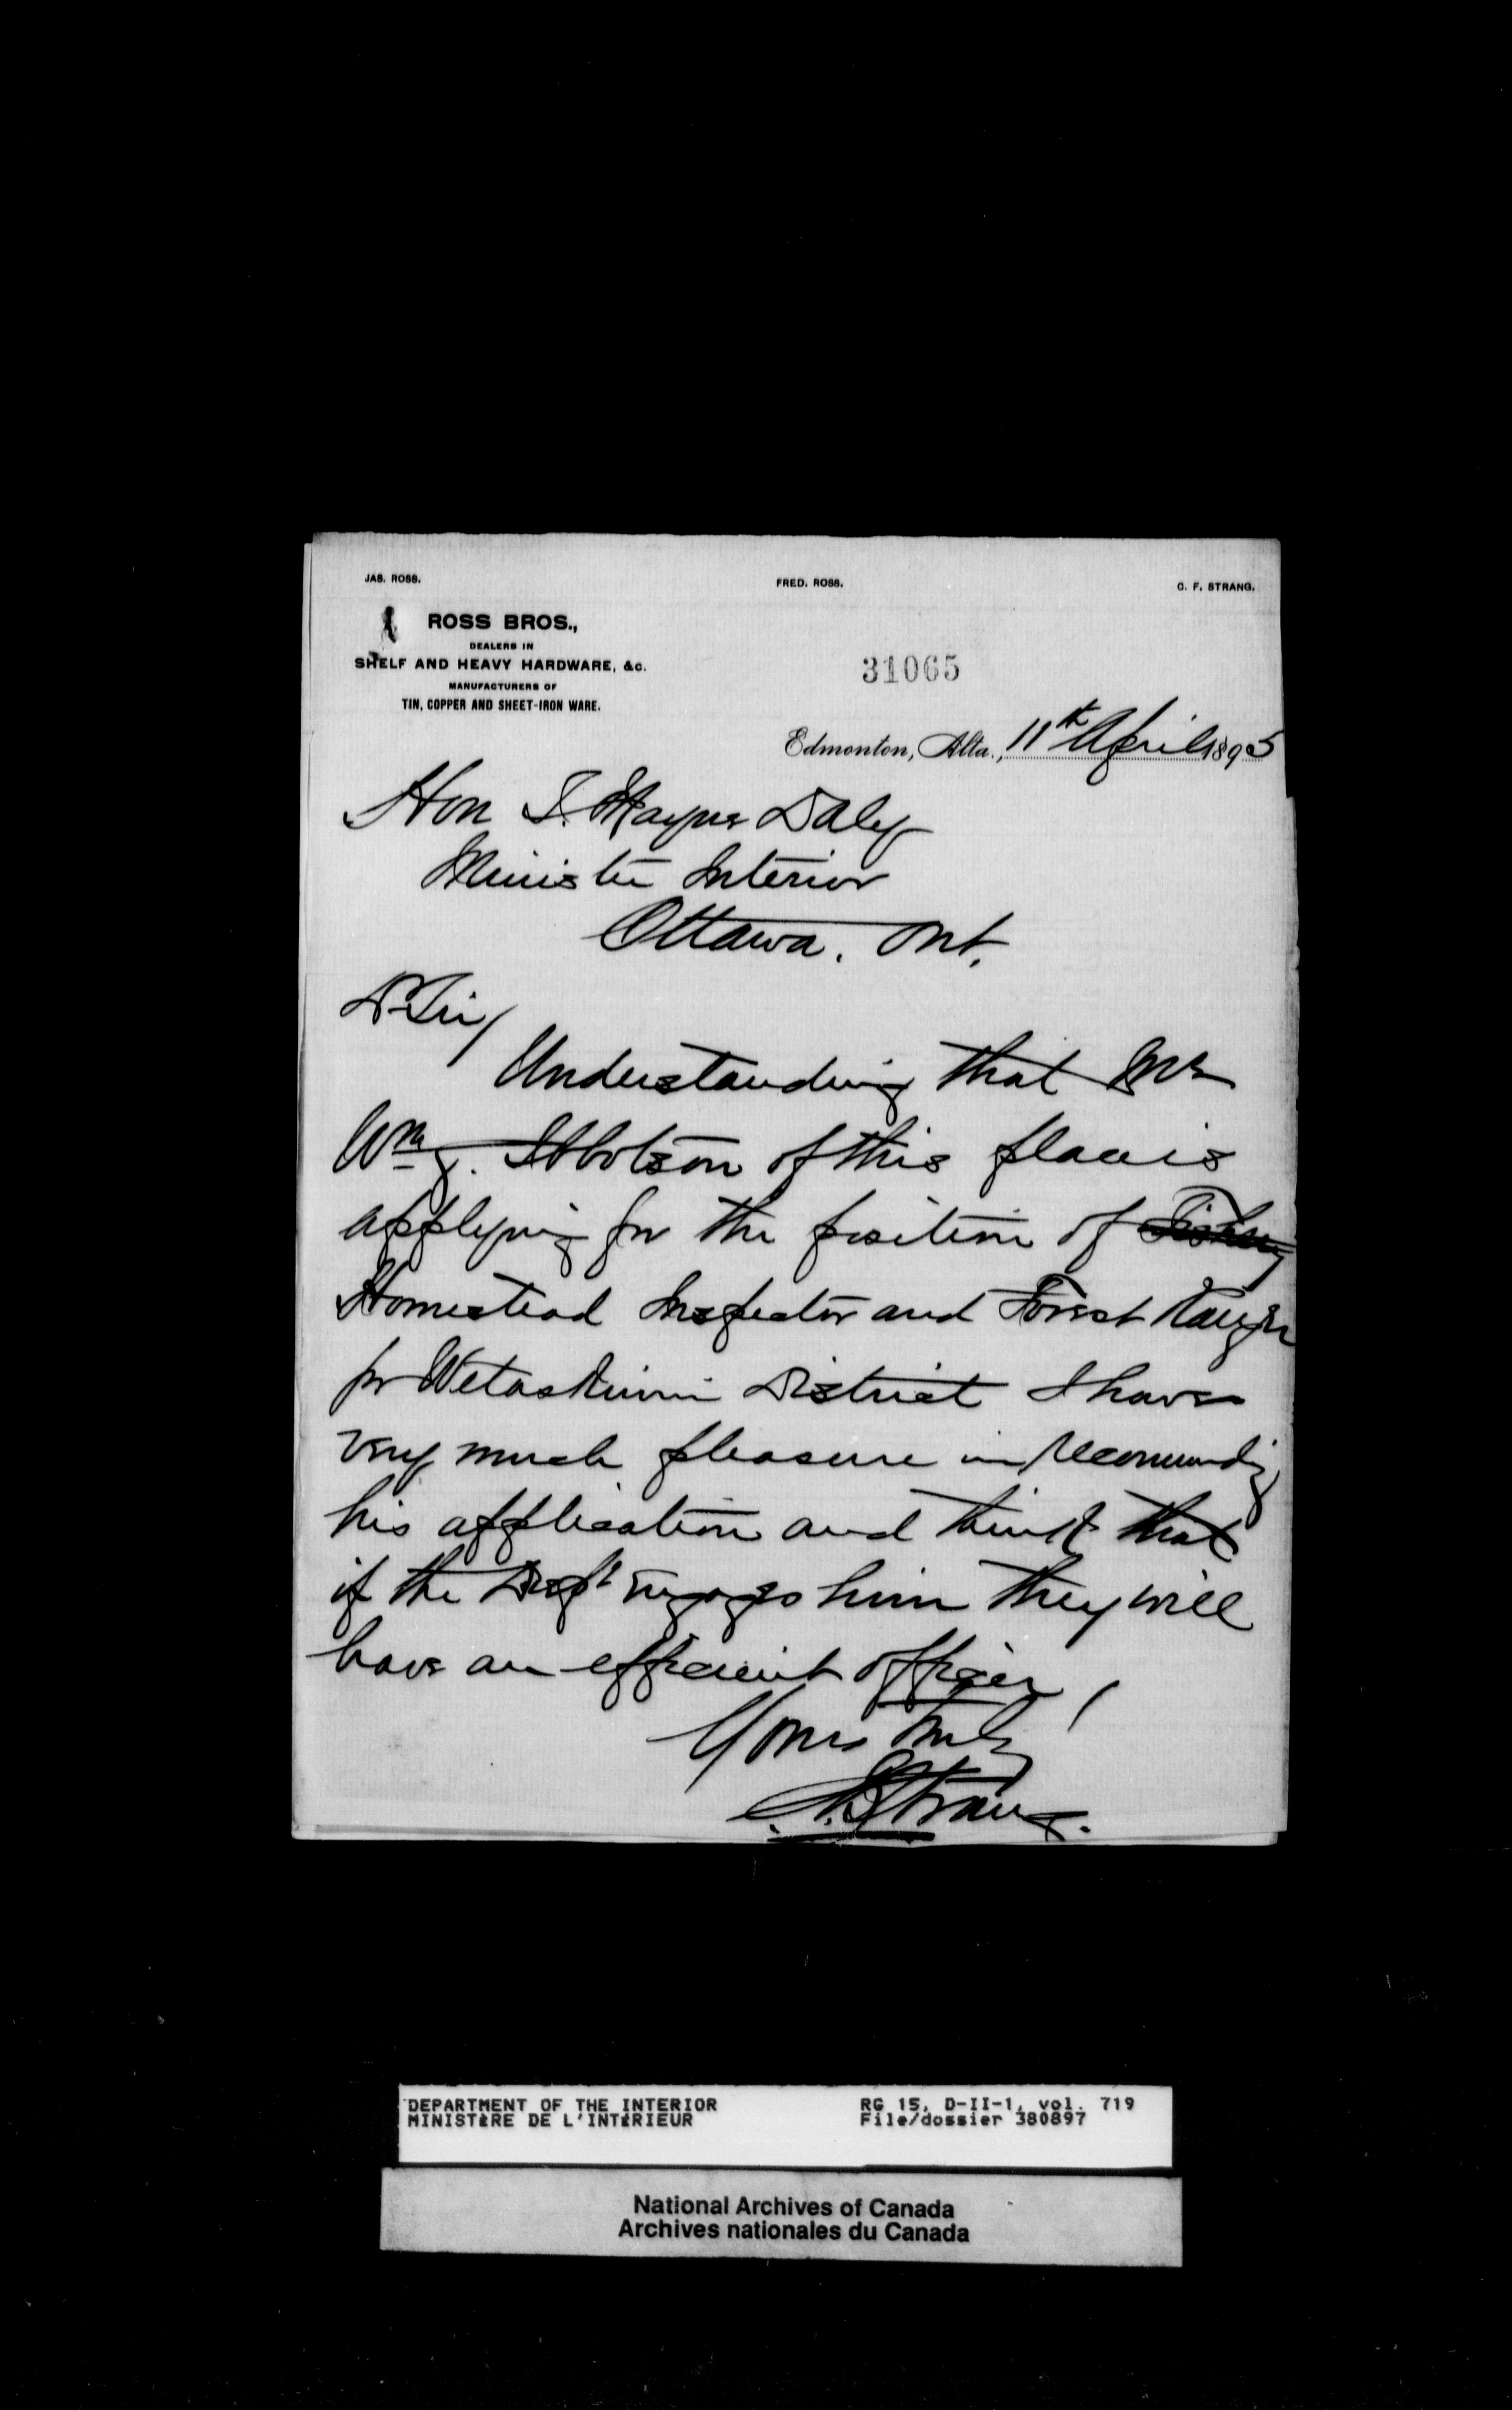 JAS. ROSS. FRED. ROSS. C. F. STRANG.
ROSS BROS.,
DEALERS IN
SHELF AND HEAVY HARDWARE, &c.
MANUFACTURERS OF
TIN, COPPER AND SHEET-IRON WARE.
31065
Edmonton, Alta., 11th April 1895
Hon T. Mayne Daly
Minister Interior
Ottawa. Ont.
D Sir/
Understanding that Mr
Wm J. Ibbotson of this place is
applying for the position of Fishery
Homestead Inspector and Forest Ranger
for Wetaskiwin District I have
very much pleasure in recommending
his application and think that
if the Dept engages him they will
have an efficient officer,
Yours truly
C. F. Strang.
DEPARTMENT OF THE INTERIOR RG 15, D-II-1, vol. 719
MINISTÈRE DE L'INTÉRIEUR File/dossier 380897
National Archives of Canada
Archives nationales du Canada